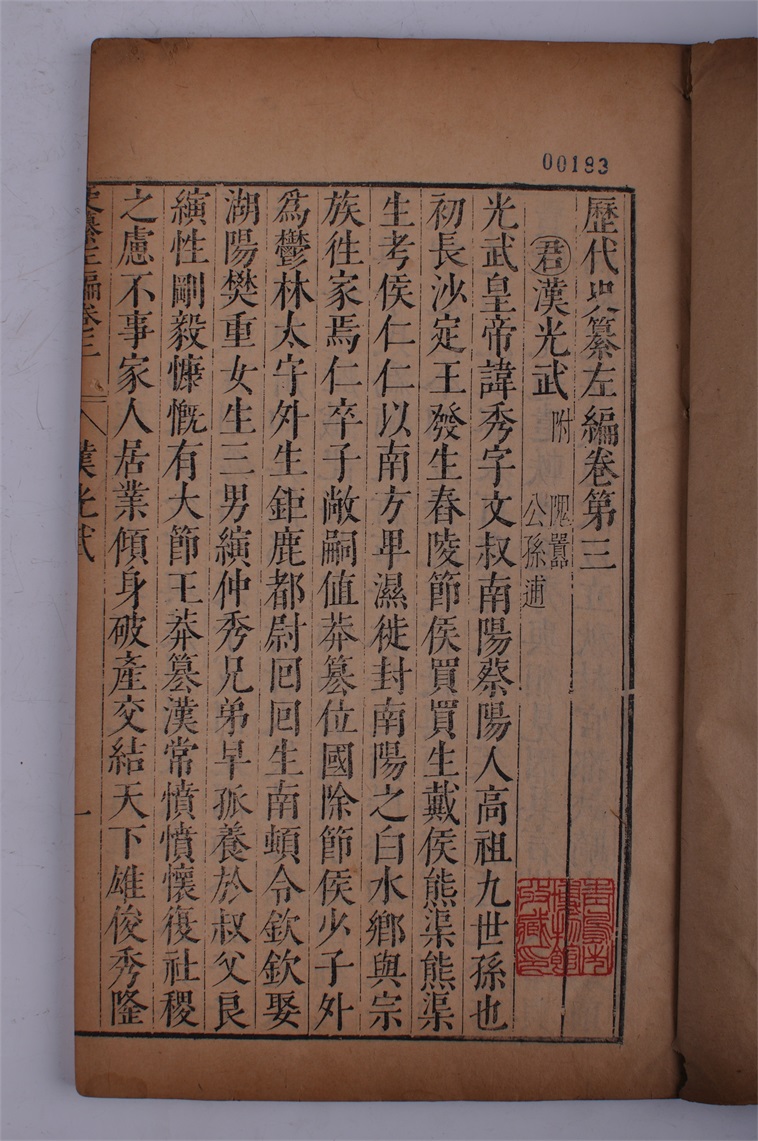 00183
歷代史纂左編卷第三
君漢光武附隗囂公孫述
光武皇帝諱秀字文叔南陽蔡陽人高祖九世孫也
初長沙定王發生舂陵節侯買買生戴侯熊渠熊渠
生考侯仁仁以南方卑濕徙封南陽之白水鄉與宗
族徃家焉仁卒子敞嗣值莽篡位國除節侯少子外
為鬱林太守外生鉅鹿都尉囘囘生南頓令欽欽娶
湖陽樊重女生三男縯仲秀兄弟早孤養於叔父良
縯性剛毅慷慨有大節王莽篡漢常憤憤懷復社稷
之慮不事家人居業傾身破產交結天下雄俊秀隆
史纂左編卷三 漢光武 一